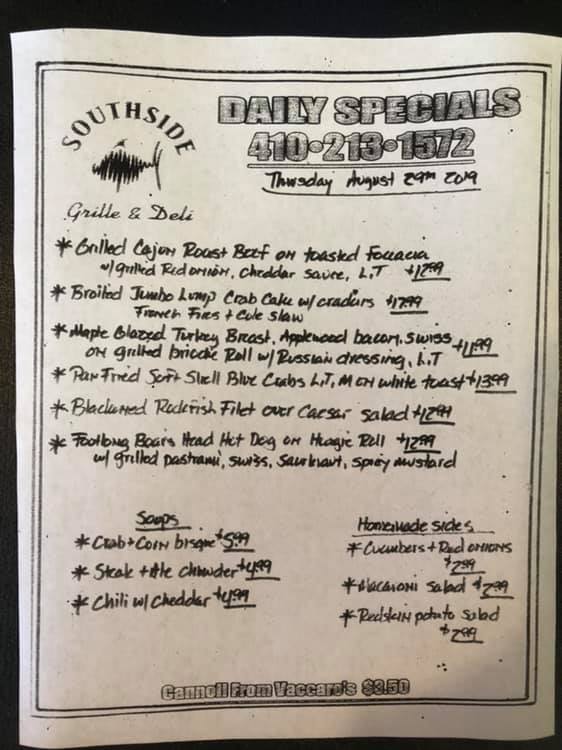 SOUTHSIDE
Grille & Deli
DAILY SPECIALS
410•213•1572
Thursday August 29th 2019
* Grilled Cajun Roast Beef on toasted Foccacia
w/grilled Red onion, Cheddar sauce, L,T $12.99
* Broiled Jumbo Lump Crab Cake w/ crackers $17.99
French Fries + Cole slaw
* Maple Glazed Turkey Breast, Applewood bacon, swiss
on grilled brioche Roll w/ Russian dressing, L,T $11.99
* Pan Fried Soft Shell Blue Crabs L,T, M on white toast $13.99
* Blackened Rockfish Filet over Caesar salad $12.99
* Footlong Boars Head Hot Dog on Hoagie Roll $12.99
w/ grilled pastrami, swiss, Saurkraut, spicy mustard
Soups
* Crab + Corn bisque $5.99
* Steak + Ale Chowder $4.99
* Chili w/ Cheddar $4.99
Homemade sides
* Cucumbers + Red onions
$2.99
* Macaroni salad $2.99
* Redskin potato salad
$2.99
Cannoli From Vaccaro's $3.50